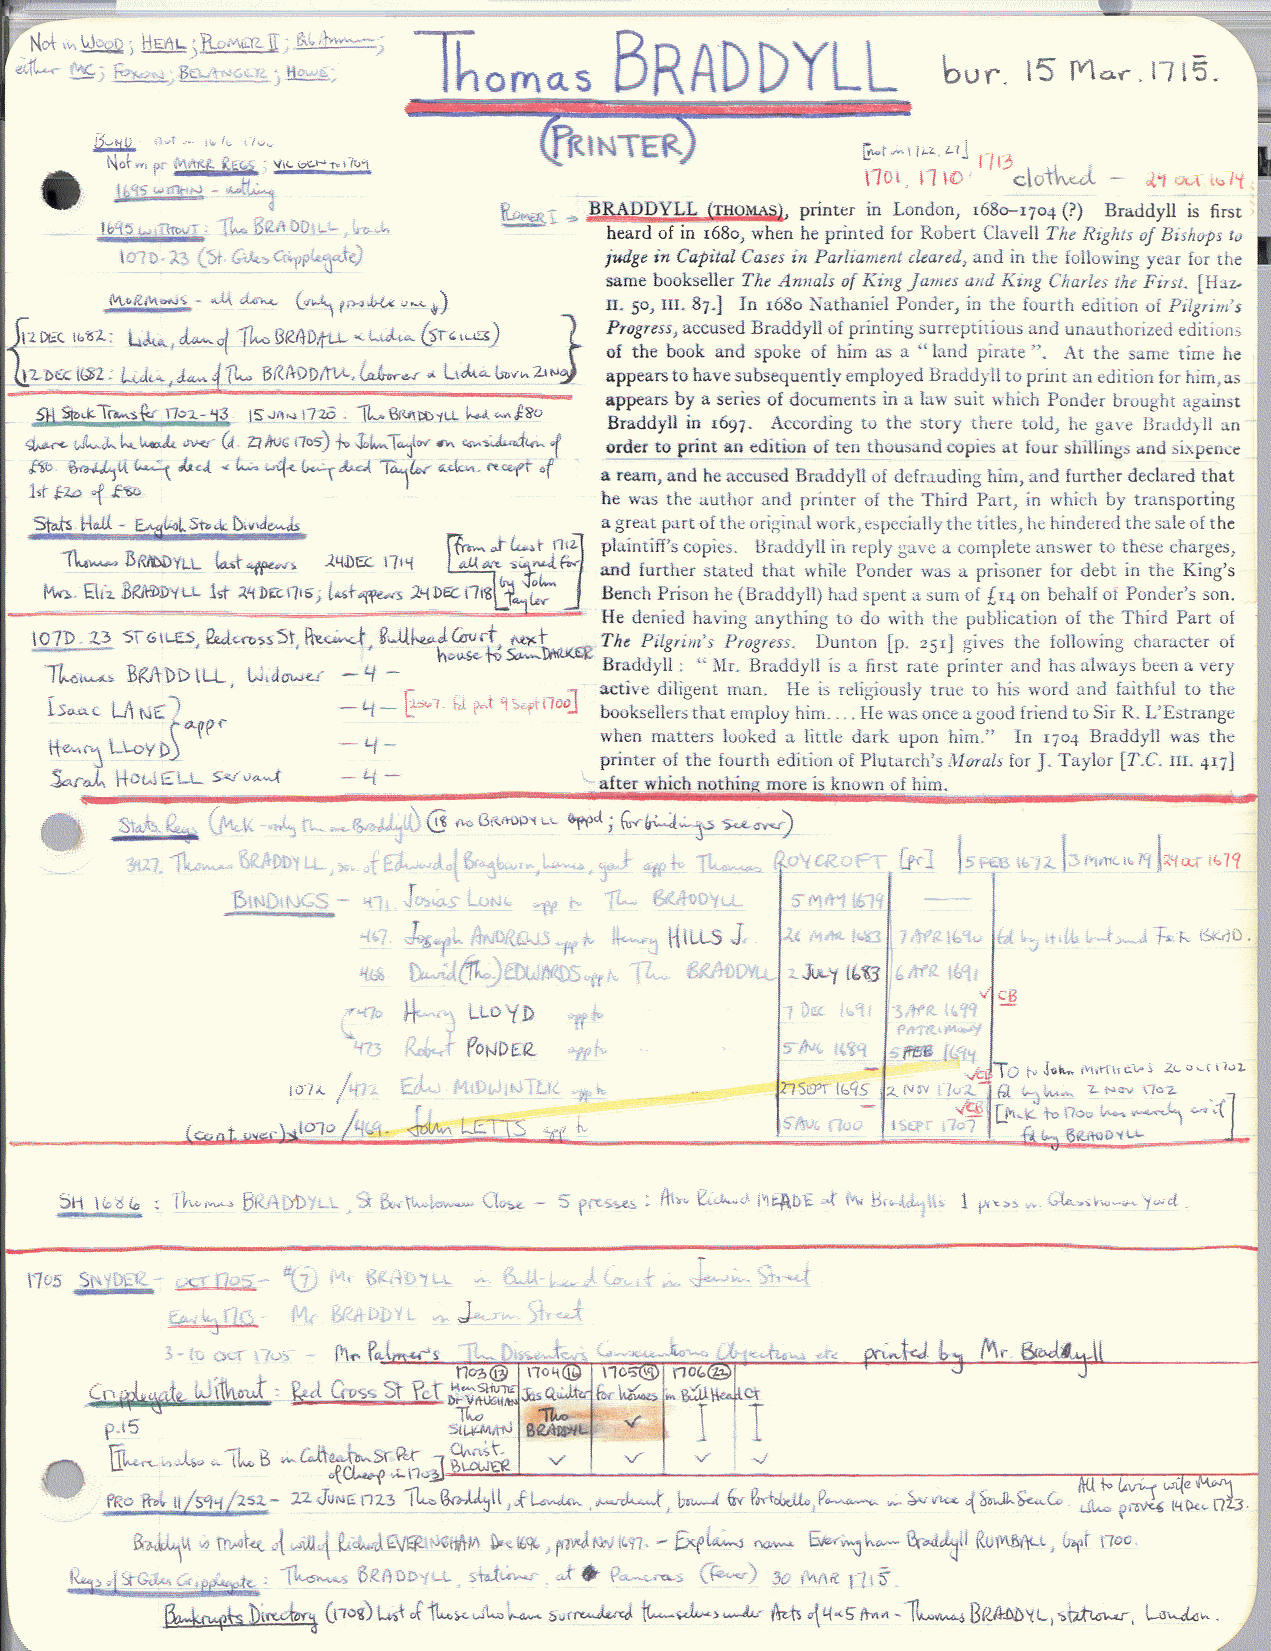 Not in WOOD; HEAL; PLOMER II;
either MC; FOXON; BELANGER; HOWE;
Thomas BRADDYLL
bur. 15 Mar. 1715.
(PRINTER)
BOYD not in 1676 1700
Not in pr MARR REGS; VIC GEN to 1709
1695 WITHIN - nothing
1695 WITHOUT: Tho BRADDILL, bach
107D-23 (St. Giles Cripplegate)
MORMONS - all done (only possible one ↓)
12 DEC 1682: Lidia, dau of Tho BRADALL & Lidia (ST GILES)
12 DEC 1682: Lidia, dau of Tho BRADDALL, laborer & Lidia born 21 Nov
[not in 1122, 27]
1701, 1710 1713
clothed - 24 OCT 1674
PLOMER I → BRADDYLL (THOMAS), printer in London, 1680–1704 (?) Braddyll is first
heard of in 1680, when he printed for Robert Clavell The Rights of Bishops to
judge in Capital Cases in Parliament cleared, and in the following year for the
same bookseller The Annals of King James and King Charles the First. [Haz-
II. 50, III. 87.] In 1680 Nathaniel Ponder, in the fourth edition of Pilgrim's
Progress, accused Braddyll of printing surreptitious and unauthorized editions
of the book and spoke of him as a "land pirate". At the same time he
appears to have subsequently employed Braddyll to print an edition for him, as
appears by a series of documents in a law suit which Ponder brought against
Braddyll in 1697. According to the story there told, he gave Braddyll an
order to print an edition of ten thousand copies at four shillings and sixpence
a ream, and he accused Braddyll of defrauding him, and further declared that
he was the author and printer of the Third Part, in which by transporting
a great part of the original work, especially the titles, he hindered the sale of the
plaintiff's copies. Braddyll in reply gave a complete answer to these charges,
and further stated that while Ponder was a prisoner for debt in the King's
Bench Prison he (Braddyll) had spent a sum of £14 on behalf of Ponder's son.
He denied having anything to do with the publication of the Third Part of
The Pilgrim's Progress. Dunton [p. 251] gives the following character of
Braddyll: "Mr. Braddyll is a first rate printer and has always been a very
active diligent man. He is religiously true to his word and faithful to the
booksellers that employ him.... He was once a good friend to Sir R. L'Estrange
when matters looked a little dark upon him." In 1704 Braddyll was the
printer of the fourth edition of Plutarch's Morals for J. Taylor [T.C. III. 417]
after which nothing more is known of him.
SH Stock Transfer 1702-43 15 JAN 1720: Tho BRADDYLL had an £80
share which he made over (d. 27 AUG 1705) to John Taylor on consideration of
£80. Braddyll being decd & his wife being decd Taylor ackn. recept of
1st £20 of £80
Stats. Hall - English Stock Dividends
Thomas BRADDYLL last appears 24 DEC 1714 [from at least 1712 all are signed for by John Taylor]
Mrs. Eliz BRADDYLL 1st 24 DEC 1715; last appears 24 DEC 1718
107D. 23 ST GILES, Redcross St, Precinct, Bullhead Court, next
house to Sam DARKER
Thomas BRADDILL, Widower - 4 -
Isaac LANE } appr - 4 - [2567. fd pat 9 Sept 1700]
Henry LLOYD - 4 -
Sarah HOWELL servant - 4 -
Stats. Regs (McK - only the one Braddyll) (18 no BRADDYLL appd; for bindings see over)
3427. Thomas BRADDYLL, son of Edward of Bragburn, Lancs, gent app to Thomas ROYCROFT [pr] 5 FEB 1672 3 MAR 1679 24 OCT 1679
BINDINGS - 471. Josias LONG app to Tho BRADDYLL 5 MAY 1679 ——
467. Joseph ANDREWS app to Henry HILLS Jr. 26 MAR 1683 7 APR 1690 fd by Hills but
468 David (Tho.) EDWARDS app to Tho BRADDYLL 2 JULY 1683 6 APR 1691
470 Henry LLOYD app to 7 DEC 1691 3 APR 1699 ✓CB
PATRIMONY
473 Robert PONDER app to 5 AUG 1689 5 FEB 1694
1072 / 472 Edw. MIDWINTER app to 27 SEPT 1695 2 NOV 1702 ✓CB TO to John MATTHEWS 26 OCT 1702
fd by him 2 NOV 1702
(cont. over) 1070 / 469. John LETTS app to 5 AUG 1700 1 SEPT 1707 ✓CB [McK to 1700 has merely as if
fd by BRADDYLL]
SH 1686: Thomas BRADDYLL, St Bartholomew Close - 5 presses: Also Richard MEADE at Mr Braddylls 1 press in Glasshouse Yard.
1705 SNYDER - OCT 1705 - #(7) Mr BRADYLL in Bull-head Court in Jewin Street
Early 1713 - Mr BRADDYL in Jewin Street
3-10 OCT 1705 - Mr. Palmer's The Dissenters Conscientious Objections etc printed by Mr. Braddyll
1703 (13) 1704 (16) 1705 (19) 1706 (22)
Cripplegate Without: Red Cross St Pct Hen SHUTE Dr VAUGHAN Jas Quilter for houses in Bull Head Ct
p.15 Tho SILKMAN Tho BRADDYL ✓
[There is also a Tho B in Catteaton St Pct of Cheap in 1703] Christ. BLOWER ✓ ✓ ✓
PRO Prob 11/594/252 - 22 JUNE 1723 Tho Braddyll, of London, merchant, bound for Portobello, Panama in Service of South Sea Co. All to loving wife Mary
who proves 14 Dec 1723.
Braddyll is trustee of will of Richard EVERINGHAM Dec 1696, proved Nov 1697. - Explains name Everingham Braddyll RUMBALL, bapt 1700.
Regs of St Giles Cripplegate: Thomas BRADDYLL, stationer, at Pancras (Fever) 30 MAR 1715.
Bankrupts Directory (1708) List of those who have surrendered themselves under Acts of 4 & 5 Ann - Thomas BRADDYL, stationer, London.